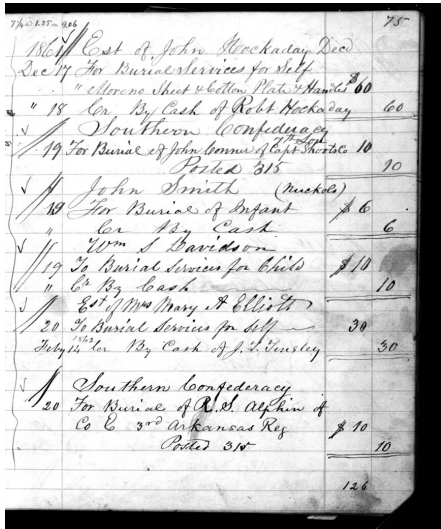 75
1861 Est of John Hockaday Decd
Dec 17 For Burial Services for Self
" Moreno Sheet & Cotton Plate & Handles $60
" 18 Cr By Cash of Robt Hockaday 60
Southern Confederacy
19 For Burial of John Conner of Capt Shoots Co 10
Posted 315 10
John Smith (Nuckols)
19 For Burial of Infant $6
" Cr By Cash 6
Wm S Davidson
19 To Burial Services for Child $10
" Cr By Cash 10
Est of Mrs Mary A Elliott
20 To Burial Services for Self 30
Feby 14 1862 Cr By Cash of J. T. Tinsley 30
Southern Confederacy
20 For Burial of R. S. Alphin of
Co E 3rd Arkansas Reg $10
Posted 315 10
126